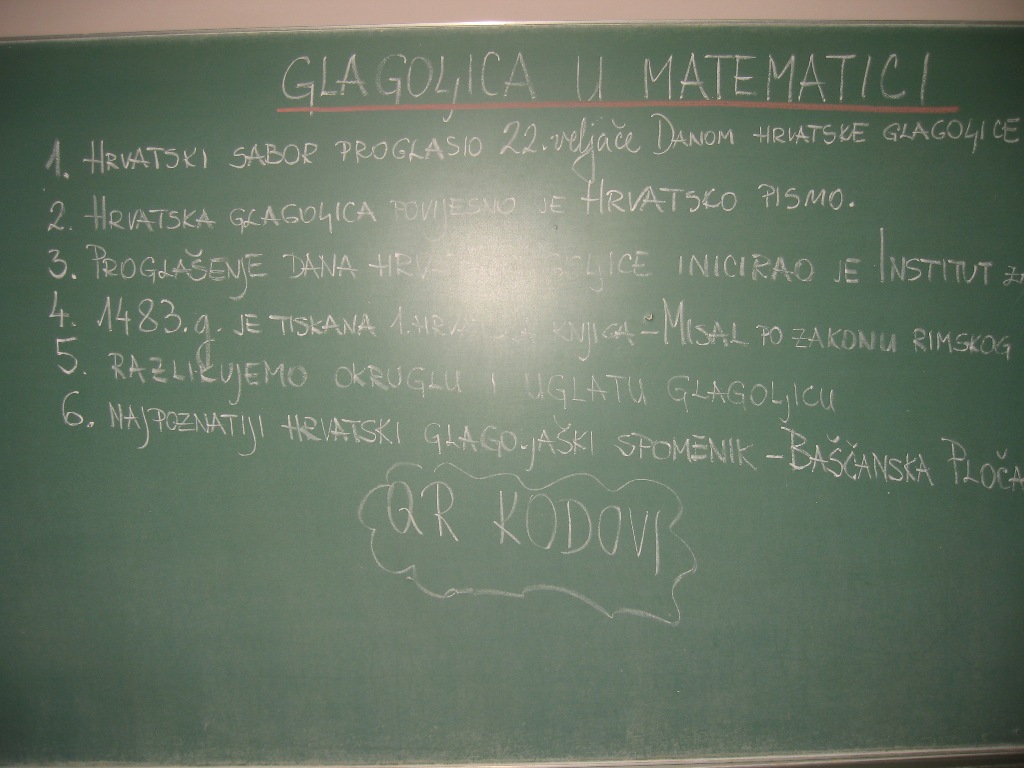 GLAGOLJICA U MATEMATICI
1. HRVATSKI SABOR PROGLASIO 22. veljače DANOM HRVATSKE GLAGOLJICE
2. HRVATSKA GLAGOLJICA POVIJESNO JE HRVATSKO PISMO.
3. PROGLAŠENJE DANA INICIRAO JE INSTITUT
4. 1483. g. JE TISKANA 1. KNJIGA - MISAL PO ZAKONU RIMSKOG
5. RAZLIKUJEMO OKRUGLU I UGLATU GLAGOLJICU
6. NAJPOZNATIJI HRVATSKI GLAGOLJAŠKI SPOMENIK - BAŠČANSKA PLOČA
QR KODOVI